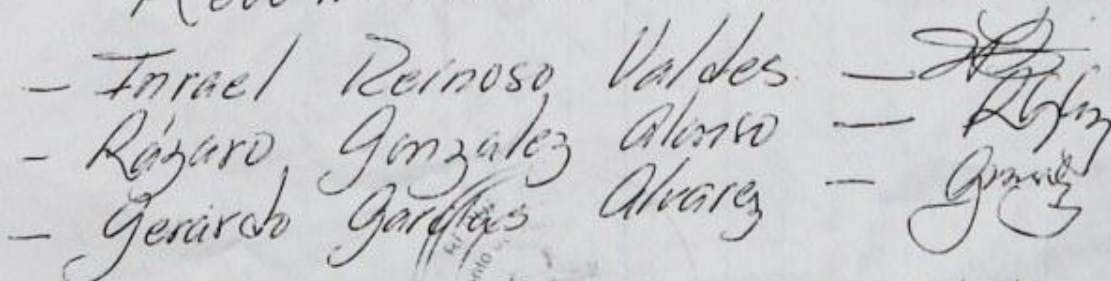 - Inrael Reinoso Valdes -
- Rázaro Gonzalez Alonso -
- Gerardo Alvarez -